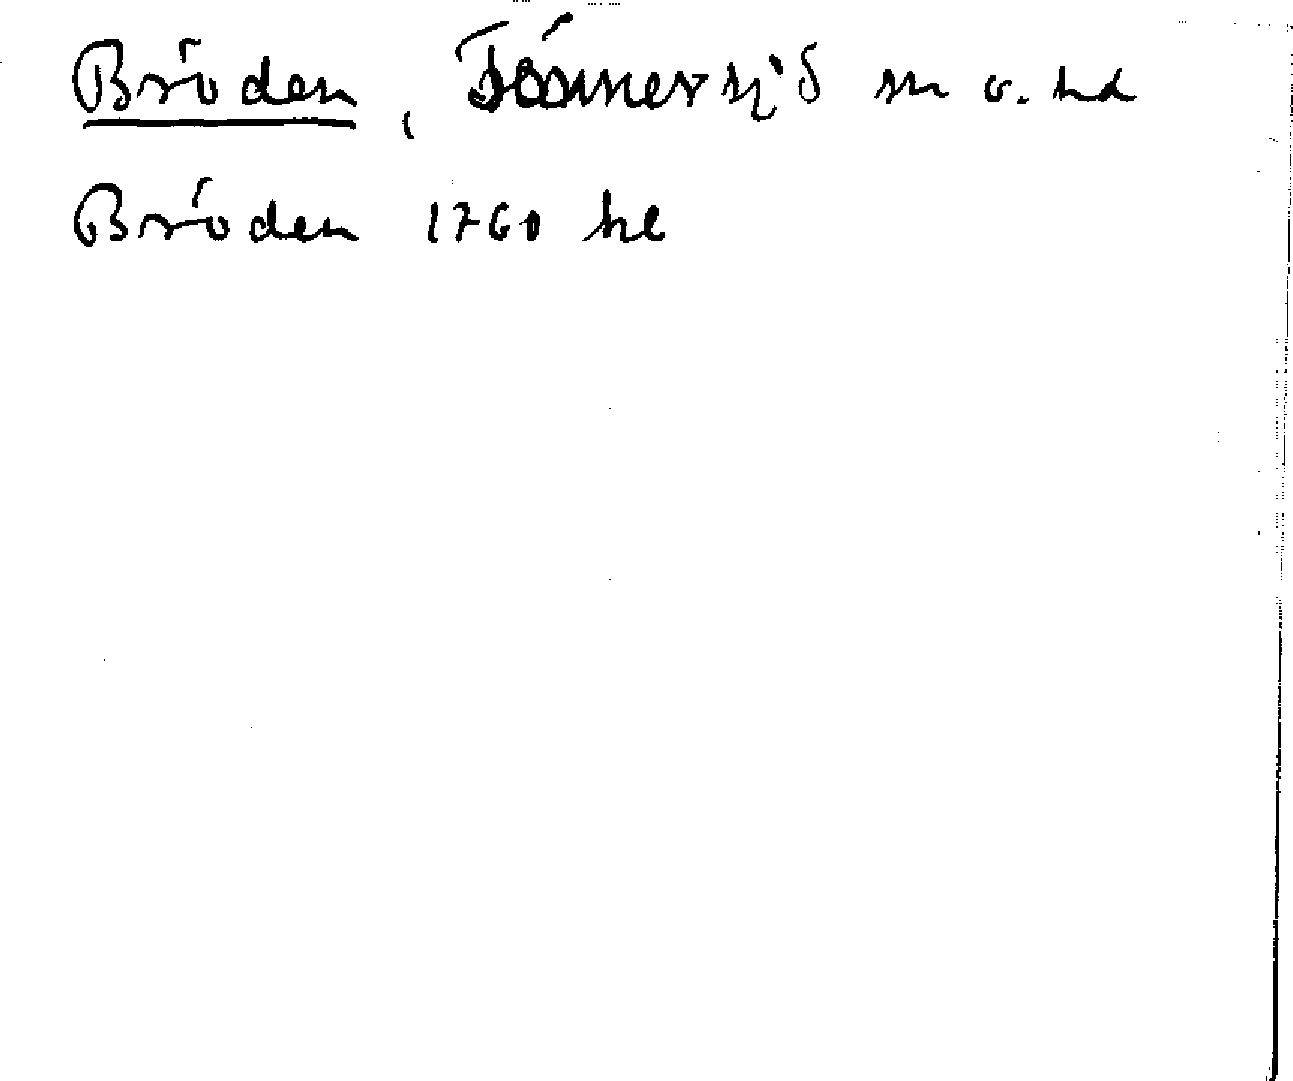 Bröden, Tösmersjö sn o. hd
Bröden 1760 hl